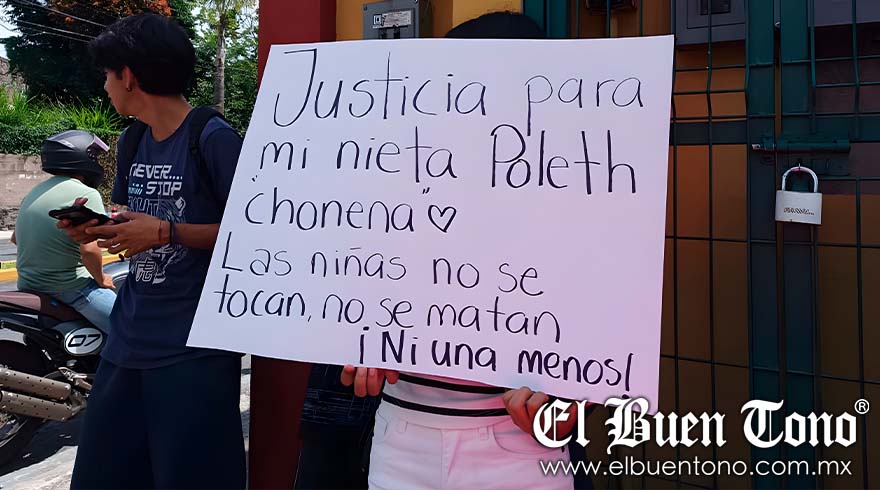 Justicia para
mi nieta Poleth
"chonena" ♡
Las niñas no se
tocan, no se matan
¡Ni una menos!
NEVER...
STOP
07
El Buen Tono®
www.elbuentono.com.mx